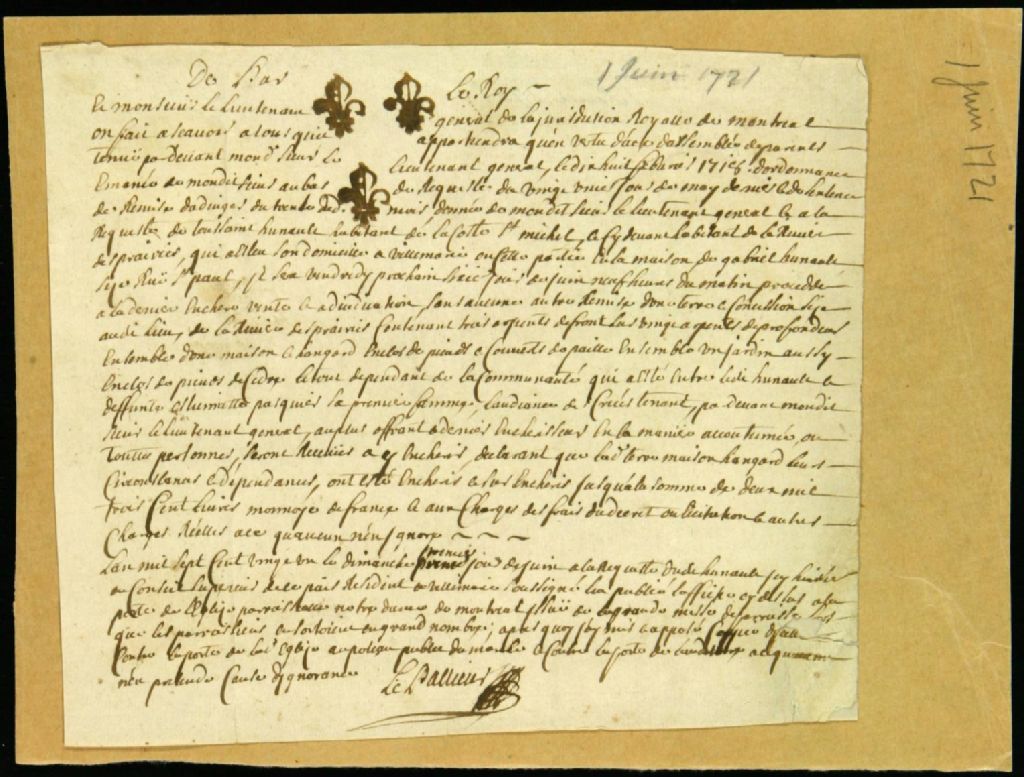 1 Juin 1721
De Par Le Roy
Et monsieur le Lieutenant general de la jurisdiction Royalle de montreal
on fait a scauoir a tous quil appartiendra qu'en vertu dacte dassemblée de parents
tenüe par deuant mond. sieur le Lieutenant general, le dix huit 1718 dordonnance
Emanée de mondit sieur au bas de Requeste du vingt neuf jour de may dernier & de sentence
de Remise dadiuger du trente dud. mois donnée de mondit sieur le lieutenant general & a la
Requeste de toussaint hunault habitant de la Coste St michel, & cy deuant habitant de la Riuiere
des prairies, qui a Esleu son domicille a villemarie en Cette partie en la maison de gabriel hunault
size Rüe St paul, jl sera vendredy prochain six jour de juin neuf heures du matin procedde
a la derniere Enchere vente & adiudication sans aucune autre Remise d'une terre & Concession size
audit lieu, de la Riuiere des prairies Contenant trois arpents de front sur vingt arpents de profondeur
Ensemble d'une maison & hangard Enclos de pieux & Couuerts de paille Ensemble un jardin aussy
Enclos de pieux de Cedre le tout dependant de la Communauté qui a Esté Entre ledit hunault &
deffunte pasquier sa premiere famme, Laudiance de Criées tenant, par deuant mondit
sieur le Lieutenant general, au plus offrant & dernier Encherisseur En la maniere accoutumée, ou
Touttes personnes, seront Receües a y Encherir, declarant que lad. terre maison hangard leurs
Circonstances & dépendances, ont esté Encheris & sur Encheris jusqu'a la somme de deux mil
trois Cent liures monnoye de france & aux Charges des frais du decret ou licitation & autres
Charges Réelles a ce qu'aucun n'en jgnore
Lan mil sept Cent vingt vn le dimanche premier jour de juin a la Requeste dudit hunault jey huissier
au Conseil superieur de ce païs Resident a villemarie soussigné leu publié laffiche cy dessus a la
porte de l'Eglize parroissialle notre dame de montreal jssüe de la grande messe de parroisse
que les parroissiens en sortoient en grand nombre; apres quoy jay mis & apposé Coppie
Contre la porte de lad. Eglize au poteau public du marché & Contre la porte de a ce qu'aucun
n'en pretende Cause djgnorance Le Pallieur
1 Juin 1721